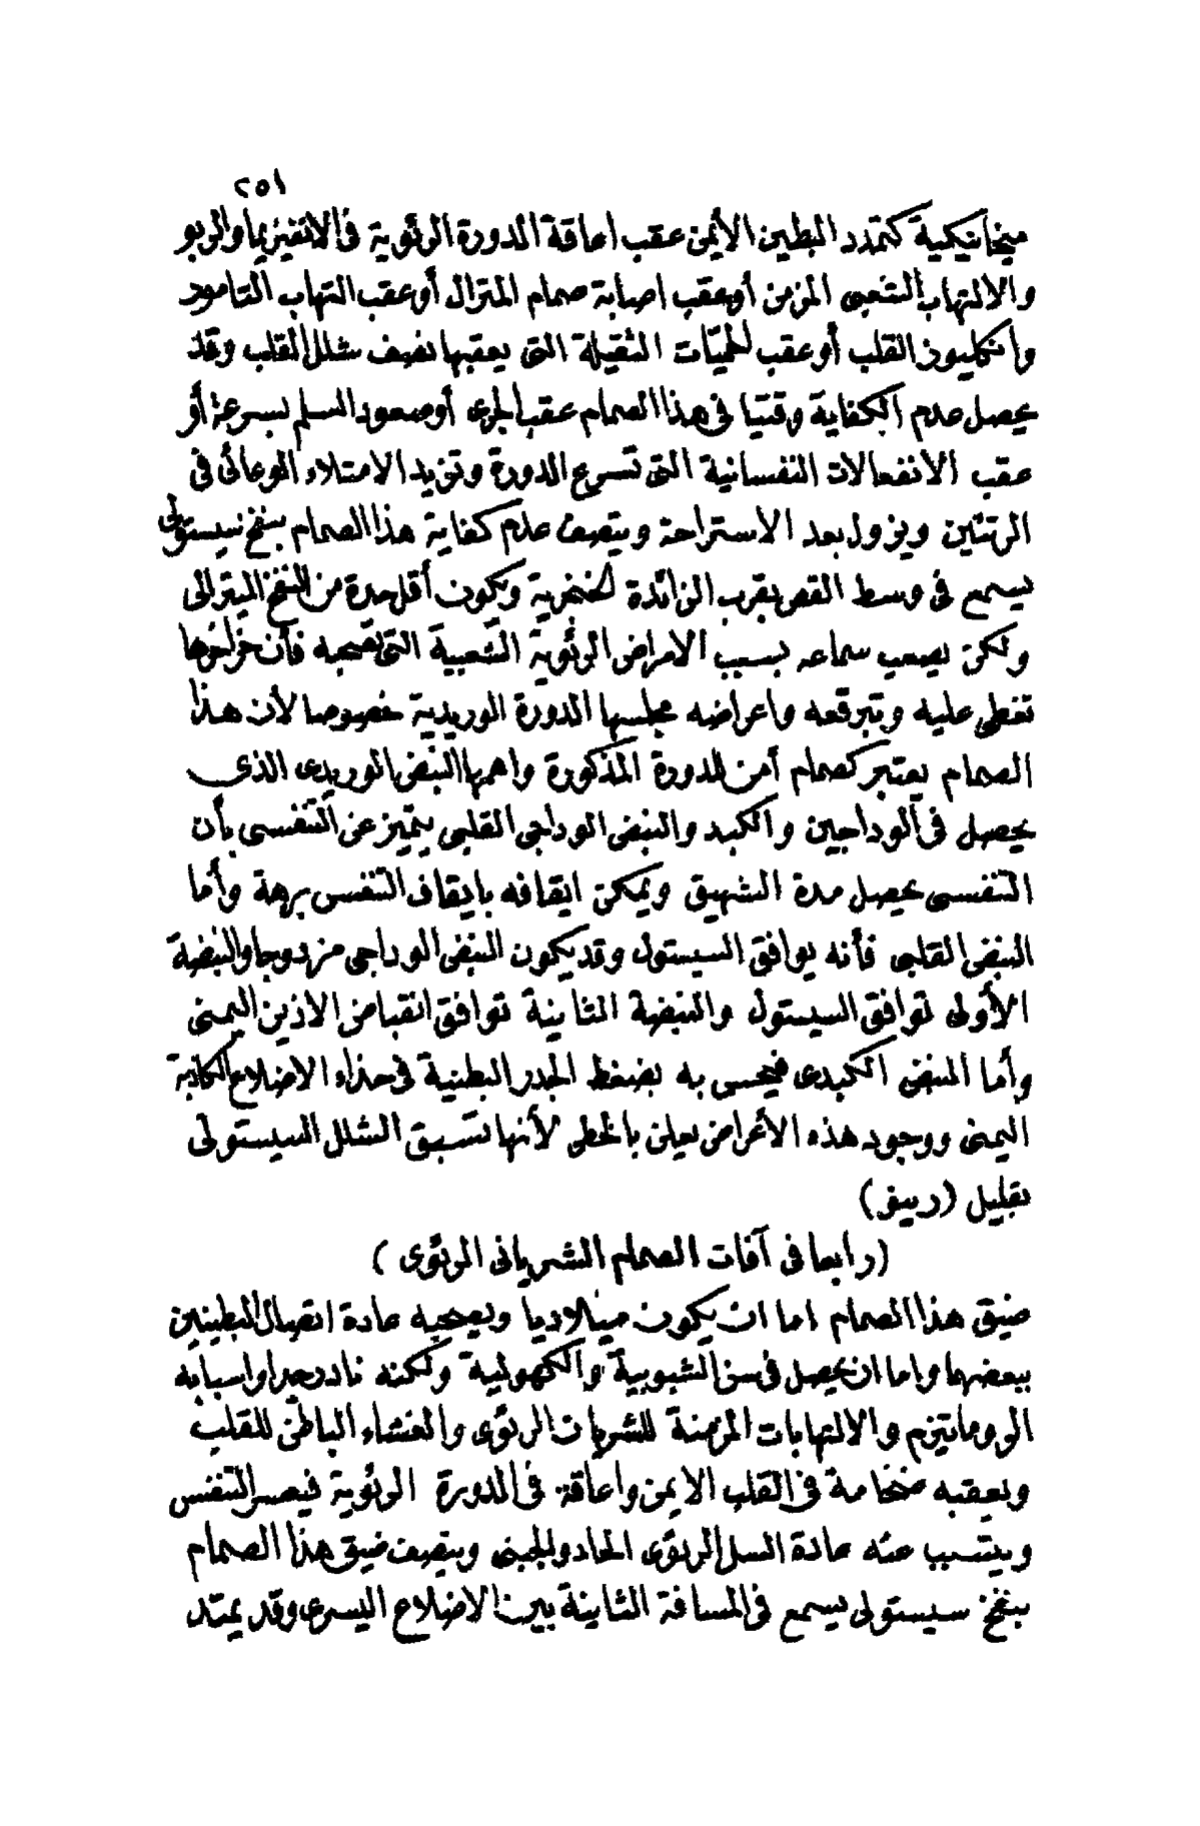 ٢٥١
ميخانيكية كتمدد البطين الأيمن عقب اعاقة الدورة الرئوية فى الانفيزيما والربو
والالتهاب الشعبى المزمن أو عقب اصابة صمام المترال أو عقب التهاب التامور
وانكليون القلب أو عقب الحميّات الثقيلة التى يعقبها نصف شلل القلب وقد
يحصل عدم الكفاية وقتيا فى هذا الصمام عقب الجرى أو صعود السلم بسرعة أو
عقب الانفعالات النفسانية التى تسرع الدورة وتزيد الامتلاء الوعائى فى
الرئتين ويزول بعد الاستراحة ويتصف عدم كفاية هذا الصمام بنفخ سيستولى
يسمع فى وسط القص بقرب الزائدة الخنجرية ويكون أقل حدة من النفخ الميترالى
ولكن يصعب سماعه بسبب الامراض الرئوية الشعبية التى تصحبه فأن خراخرها
تغطى عليه وتبرقعه واعراضه مجلسها الدورة الوريدية خصوصا لأن هذا
الصمام يعتبر كصمام أمن للدورة المذكورة واهمها النبض الوريدى الذى
يحصل فى الوداجين والكبد والنبض الوداجى القلبى يتميز عن التنفسى بأن
التنفسى يحصل مدة الشهيق ويمكن ايقافه بايقاف التنفس برهة وأما
النبض القلبى فأنه يوافق السيستول وقد يكون النبض الوداجى مزدوجا والنبضة
الأولى توافق السيستول والنبضة الثانية توافق انقباض الاذين اليمنى
وأما النبض الكبدى فيحس به بضغط الجدر البطنية فى حذاء الاضلاع الكاذبة
اليمنى ووجود هذه الأعراض يعلن بالخطر لأنها تسبق الشلل السيستولى
بقليل (رييف)
(رابعا فى آفات الصمام الشريانى الرئوى)
ضيق هذا الصمام اما ان يكون ميلاديا ويصحبه عادة اتصال البطينين
ببعضهما واما ان يحصل فى سن الشبوبية والكهولية ولكنه نادر جدا واسبابه
الروماتيزم والالتهابات المزمنة للشريان الرئوى والغشاء الباطن للقلب
ويعقبه ضخامة فى القلب الايمن واعاقة فى الدورة الرئوية فيعسر التنفس
ويتسبب عنه عادة السل الرئوى الحاد والجبنى ويتصف ضيق هذا الصمام
بنفخ سيستولى يسمع فى المسافة الثانية بين الاضلاع اليسرى وقد يمتد